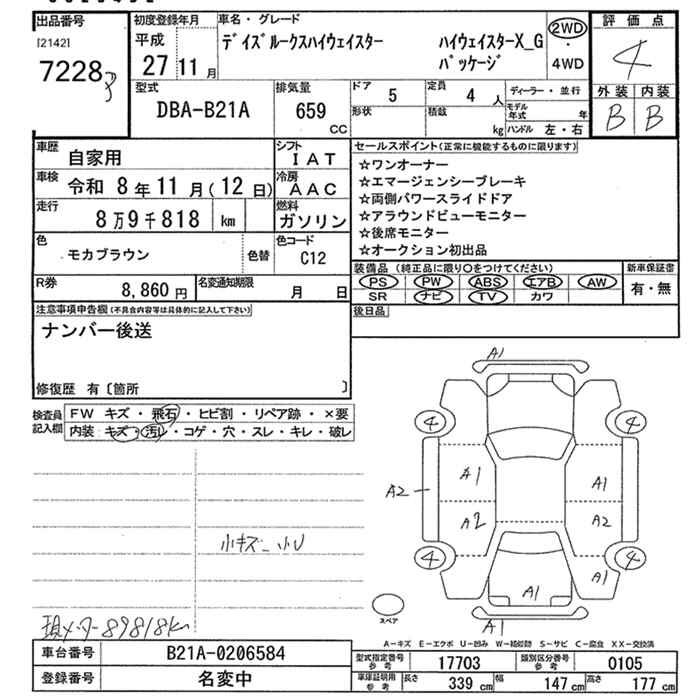 出品番号
[2142]
7228
初度登録年月
平成
27 11 月
車名・グレード
デイズルークスハイウェイスター ハイウェイスターX_G
パッケージ
2WD
・
4WD
評価点
4
外装 内装
B B
型式
DBA-B21A
排気量
659
CC
ドア
5
定員
4 人
形状
積載
kg
ディーラー・並行
モデル年式 年
ハンドル 左・右
車歴
自家用
シフト
IAT
車検
令和 8年 11月(12日)
冷房
AAC
走行
8万9千818 km
燃料
ガソリン
色
モカブラウン
色替
色コード
C12
R券
8,860円
名変通知期限
月 日
セールスポイント(正常に機能するものに限ります)
☆ワンオーナー
☆エマージェンシーブレーキ
☆両側パワースライドドア
☆アラウンドビューモニター
☆後席モニター
☆オークション初出品
装備品(純正品に限り○をつけてください)
PS PW ABS エアB AW
SR ナビ TV カワ
新車保証書
有・無
後日品
注意事項申告欄(不具合内容等は具体的に記入して下さい)
ナンバー後送
修復歴 有〔箇所 〕
検査員
記入欄
FW キズ・飛石・ヒビ割・リペア跡・×要
内装 キズ・汚レ・コゲ・穴・スレ・キレ・破レ
小キズ 小U
現メーター89818km
A1
4 4
A1 A1
A2
A2 A2
4 4
A1
A1
スペア
A1
A-キズ E-エクボ U-凹み W-補修跡 S-サビ C-腐食 XX-交換済
車台番号
B21A-0206584
登録番号
名変中
型式指定番号
参考
17703
類別区分番号
参考
0105
車庫証明用
参考
長さ 339 cm 幅 147 cm 高さ 177 cm